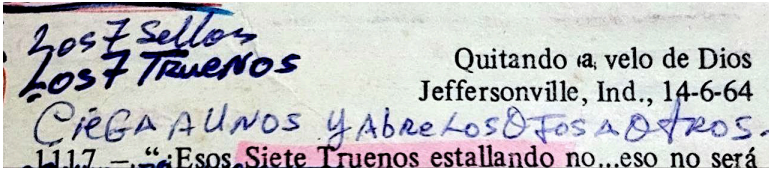 Los 7 Sellos
Los 7 TRUENOS
Quitando a, velo de Dios
Jeffersonville, Ind., 14-6-64
CIEGA A UNOS Y AbRE LOS OJOS A OTROS.
1117 –. “¡Esos Siete Truenos estallando no...eso no será